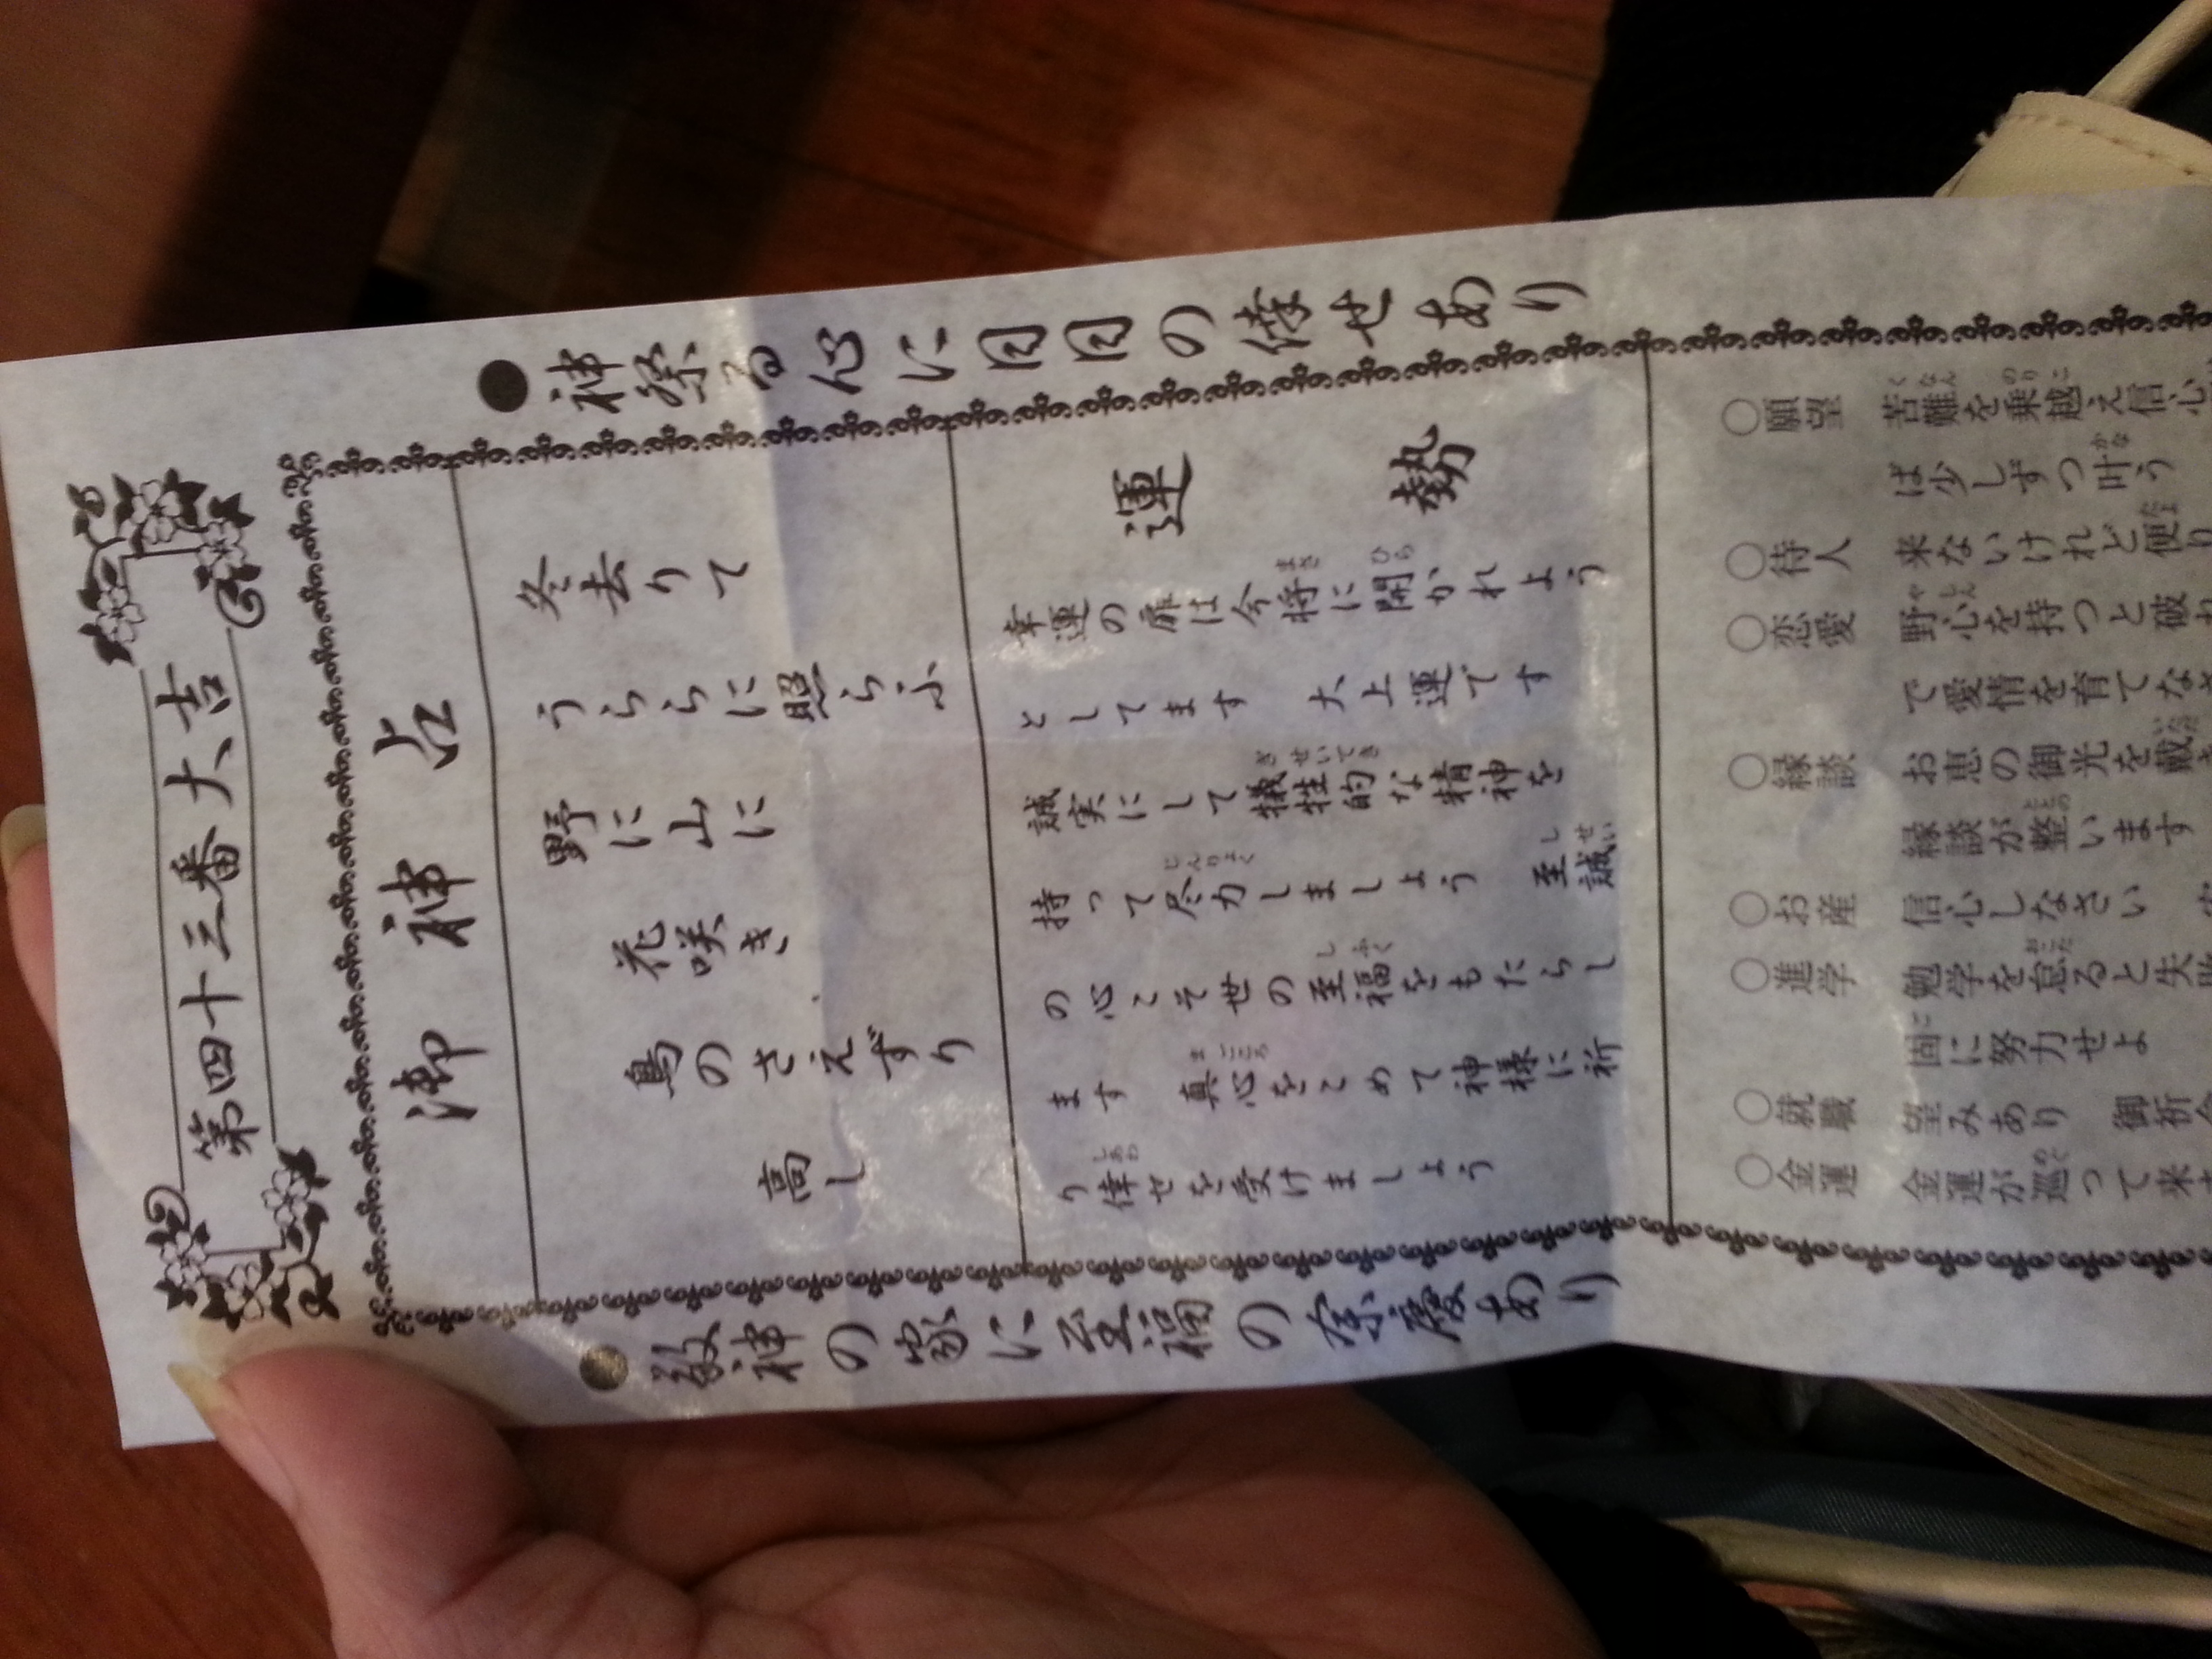 第四十三番 大吉
●神祭る心に日日の倖せあり
御神占
冬去りて
うららに照らふ
野に山に
花咲き
鳥のさえずり
高し
運勢
幸運の扉は今将に開かれよう
としてます 大上運です
誠実にして犠牲的な精神を
持って尽力しましょう 至誠
の心こそ世の至福をもたらし
ます 真心をこめて神様に祈
り倖せを受けましょう
●敬神の家に至福の余慶あり
○願望 苦難を乗越え信心
ば少しずつ叶う
○待人 来ないけれど便り
○恋愛 野心を持つと破
で愛情を育てなさ
○縁談 お恵の御光を戴き
縁談が整います
○お産 信心しなさい
○進学 勉学を怠ると失敗
固に努力せよ
○就職 望みあり 御祈
○金運 金運が巡って来